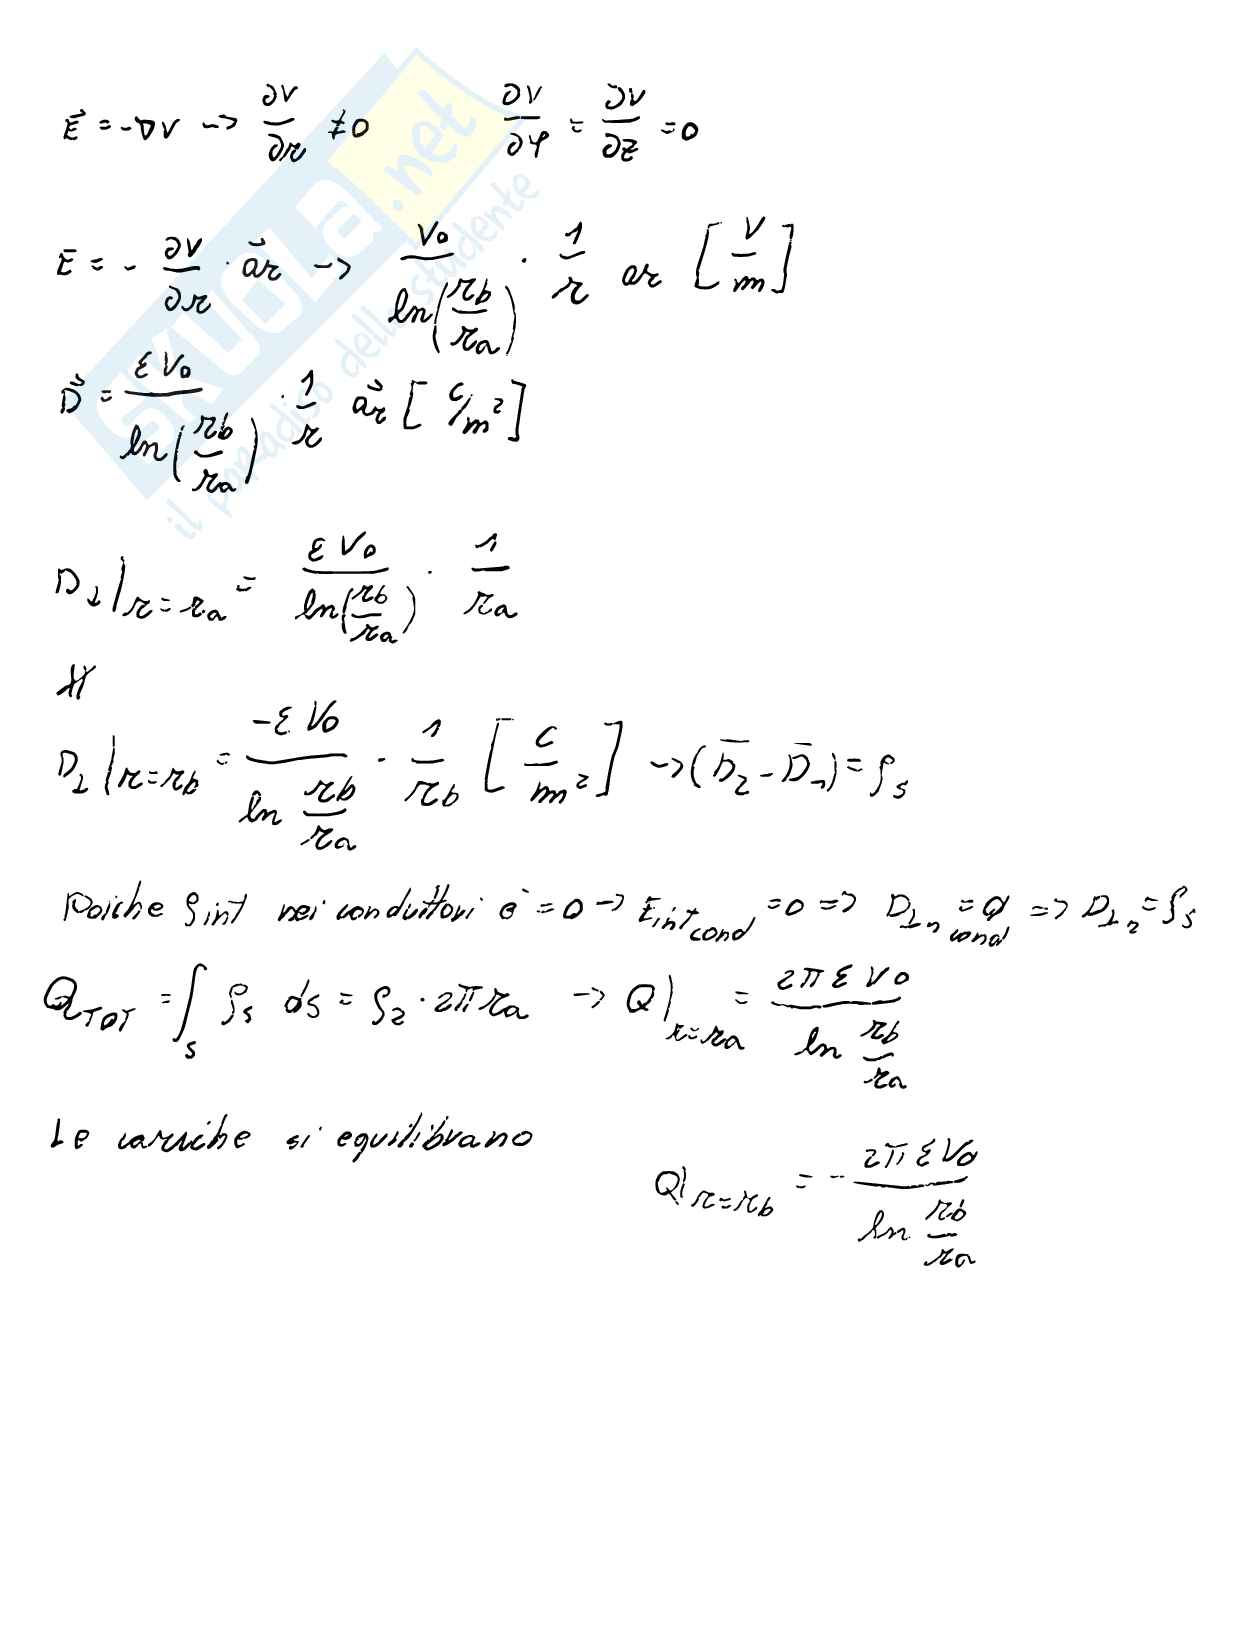 E⃗ = -∇V → ∂V/∂r ≠ 0   ∂V/∂φ = ∂V/∂z = 0
E̅ = - ∂V/∂r · a⃗r → V0/ln(rb/ra) · 1/r ar [V/m]
D⃗ = εV0/ln(rb/ra) · 1/r a⃗r [C/m²]
D⊥|r=ra = εV0/ln(rb/ra) · 1/ra
D⊥|r=rb = -εV0/ln rb/ra · 1/rb [C/m²] → (D̅2 - D̅1) = ρs
Poiche ρint nei conduttori è = 0 → Eint cond = 0 => D⊥1 cond = 0 => D⊥2 = ρs
QTOT = ∫s ρs ds = ρ2 · 2πra → Q|r=ra = 2πεV0/ln rb/ra
Le cariche si equilibrano
Q|r=rb = - 2πεV0/ln rb/ra
SKUOLA.net
il paradiso dello studente